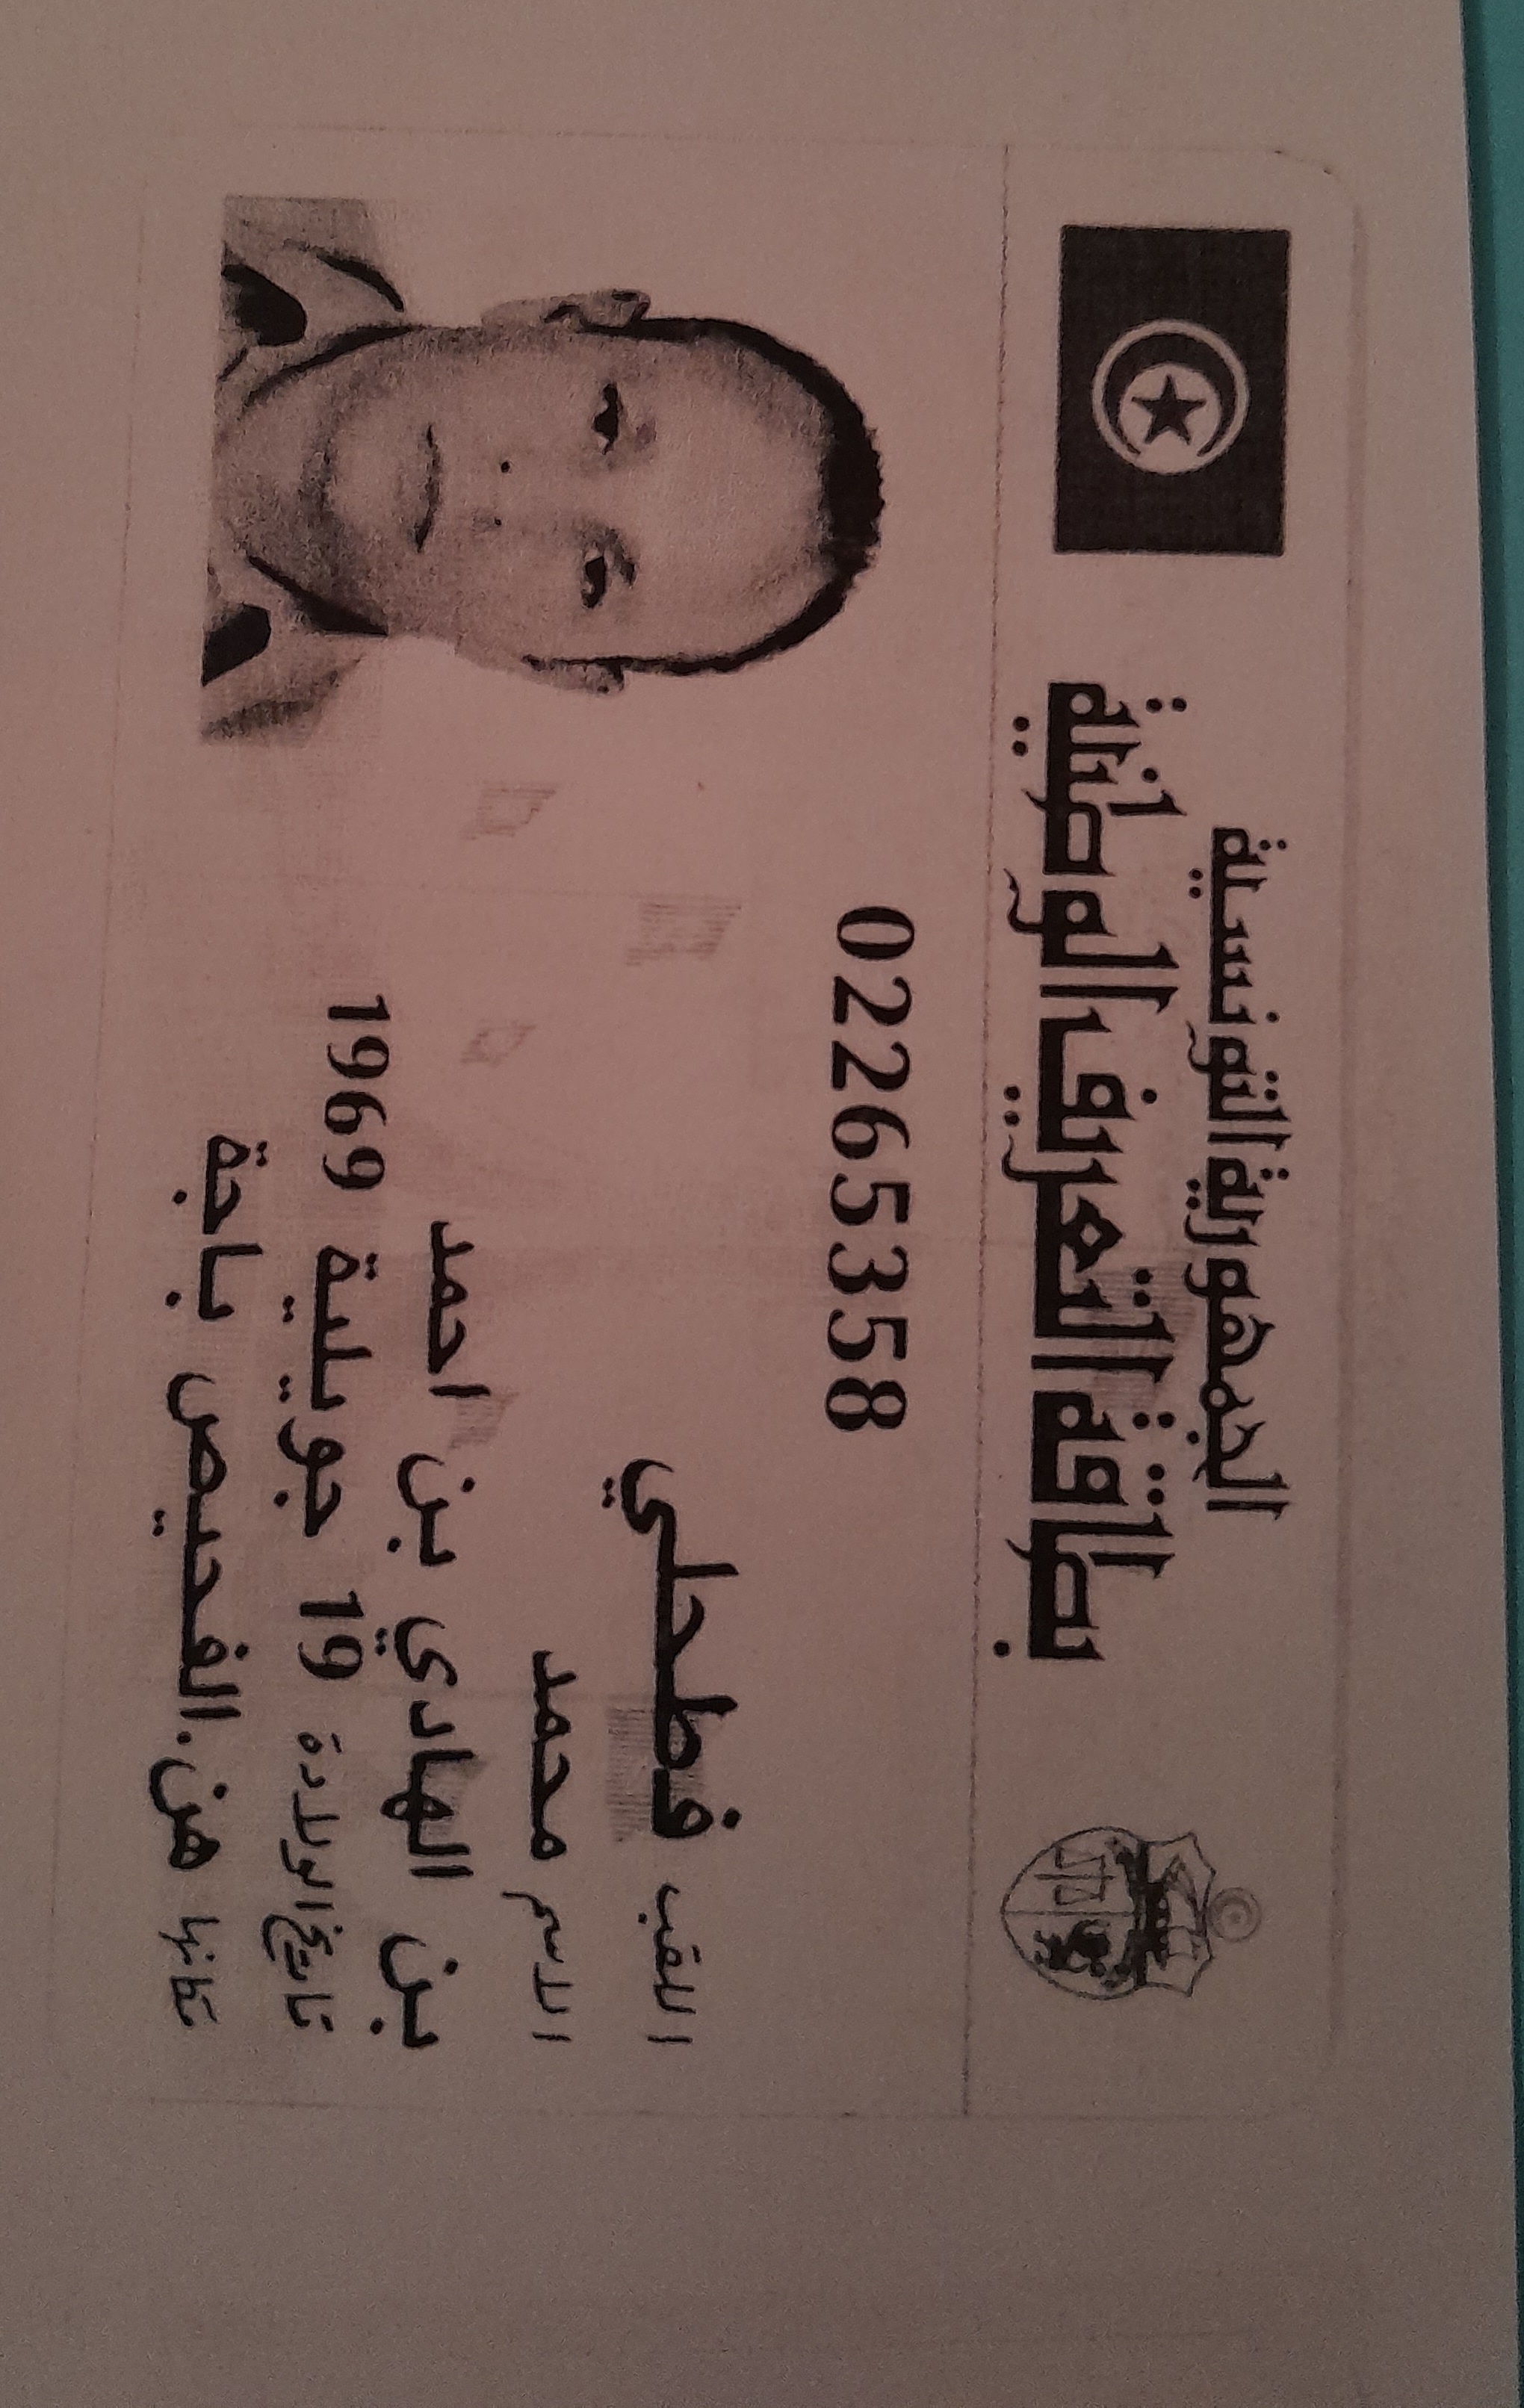 الجمهورية التونسية
بطاقة التعريف الوطنية
02265358
اللقب فطحلي
الاسم محمد
بن الهادي بن احمد
تاريخ الولادة 19 جويلية 1969
مكانها هن.الفحيص باجة